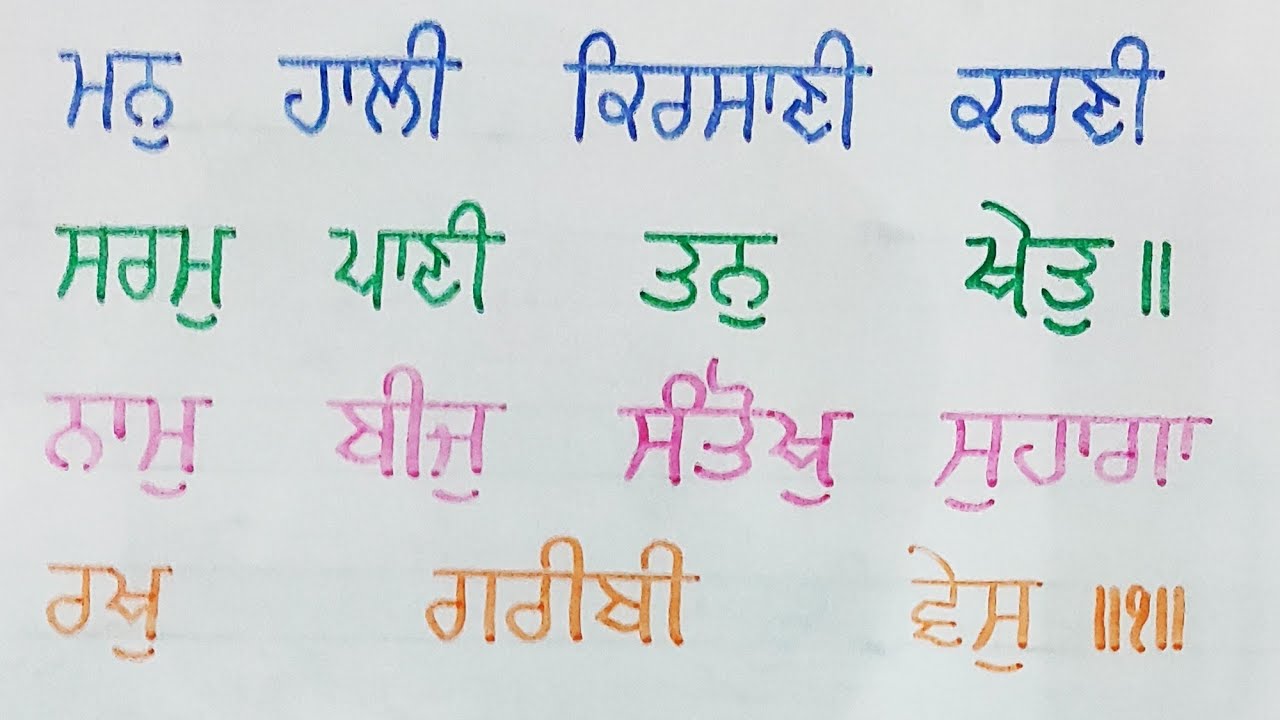 ਮਨੁ ਹਾਲੀ ਕਿਰਸਾਣੀ ਕਰਣੀ
ਸਰਮੁ ਪਾਣੀ ਤਨੁ ਖੇਤੁ ॥
ਨਾਮੁ ਬੀਜੁ ਸੰਤੋਖੁ ਸੁਹਾਗਾ
ਰਖੁ ਗਰੀਬੀ ਵੇਸੁ ॥੧॥